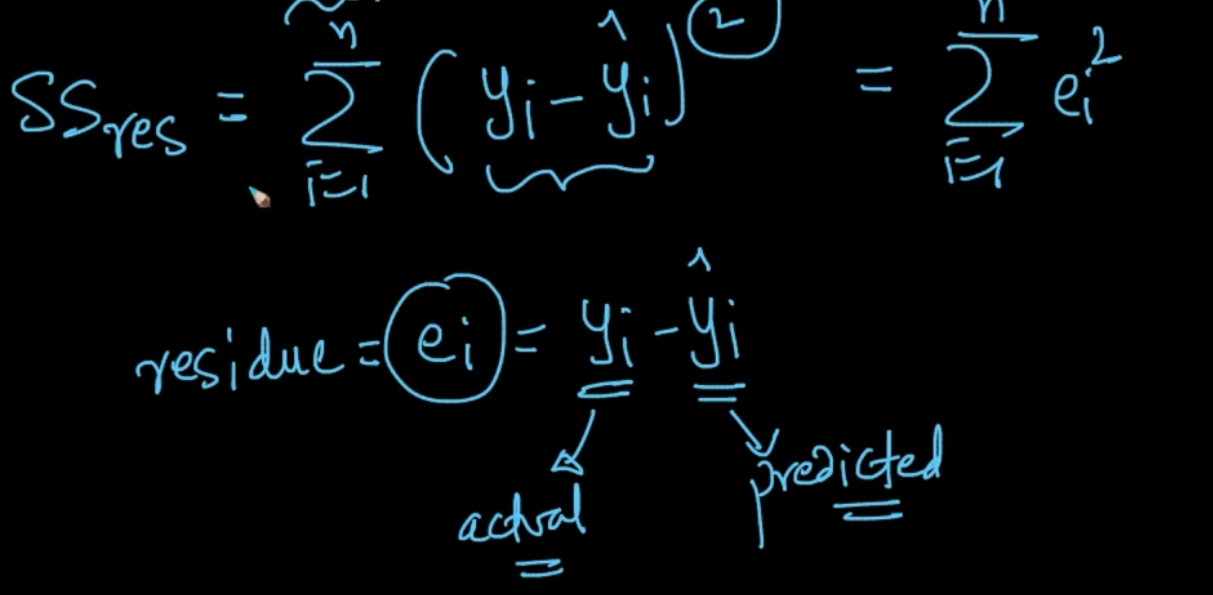 SSres = n∑i=1 (yi - ŷi)² = n∑i=1 ei²
residue = ei = yi - ŷi
actual predicted